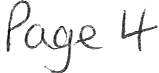 Page 4